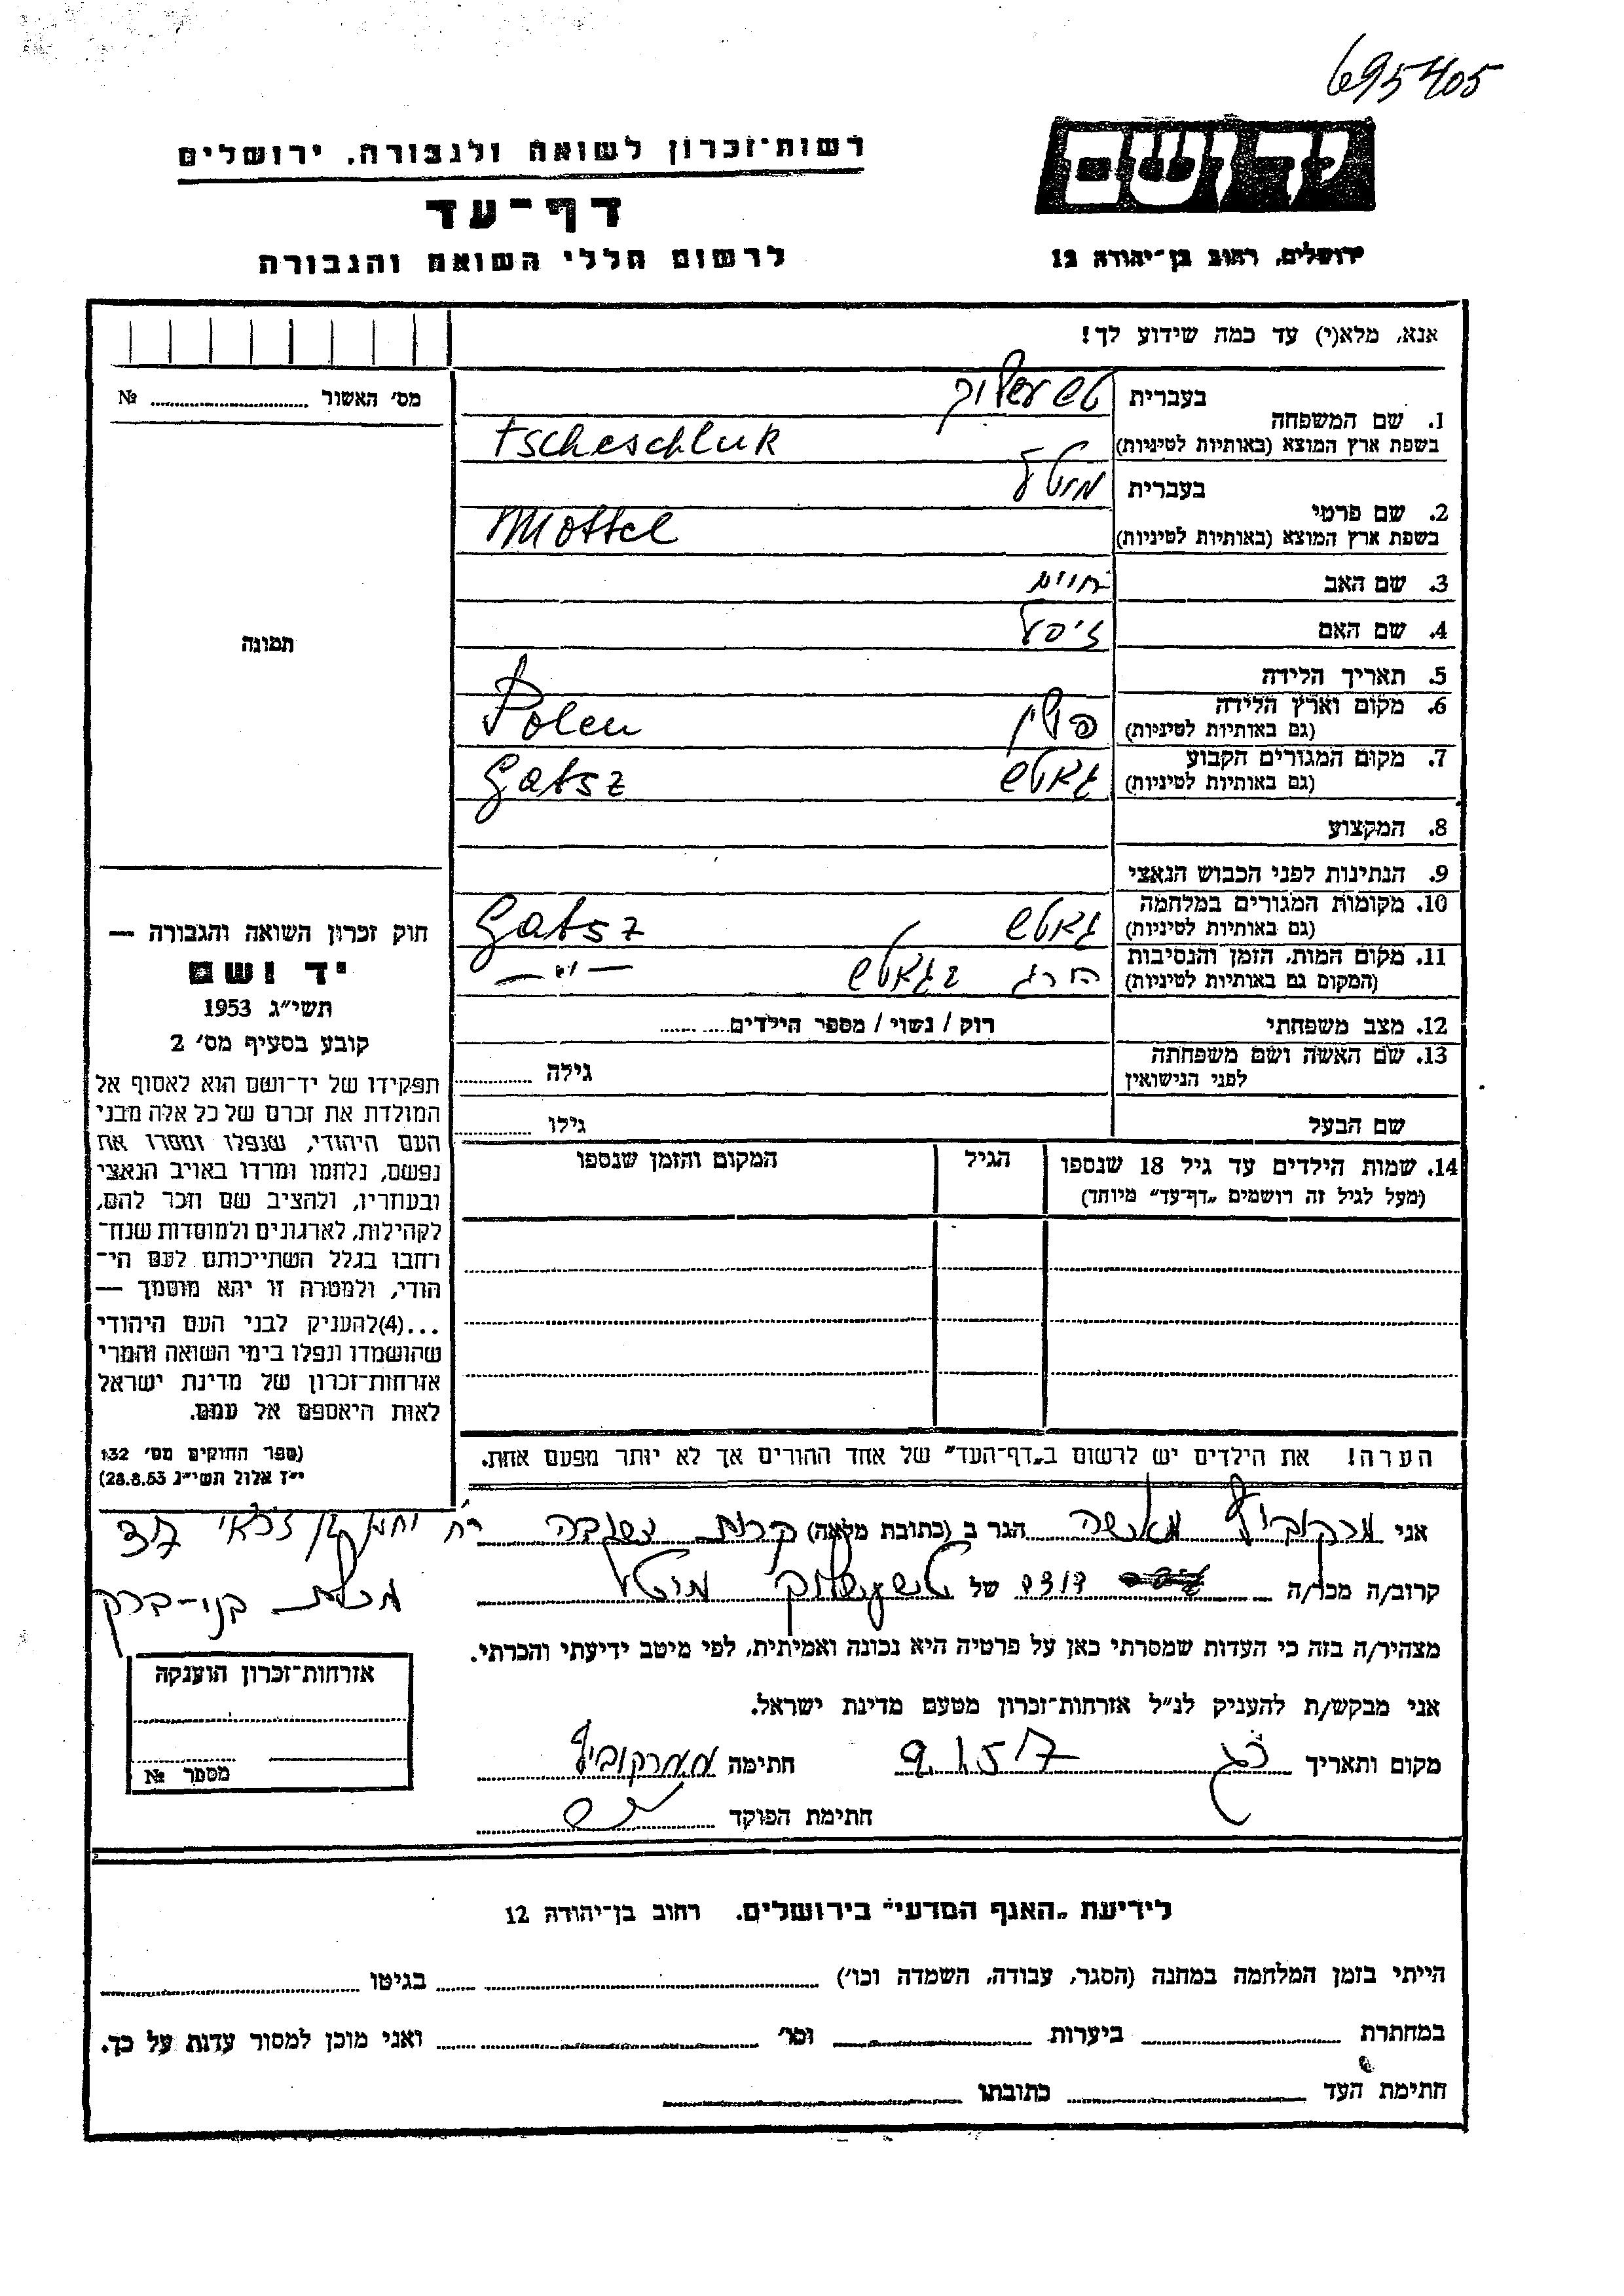 695405
רשות־זכרון לשואה ולגבורה, ירושלים
יד ושם
דף־עד
לרשום חללי השואה והגבורה
ירושלים, רחוב בן־יהודה 12
אנא, מלא(י) עד כמה שידוע לך!
מס׳ האשור № ..........
תמונה
1. שם המשפחה בעברית טשעשלוק
בשפת ארץ המוצא (באותיות לטיניות) Tscheschluk
2. שם פרטי בעברית מוטל
בשפת ארץ המוצא (באותיות לטיניות) Mottel
3. שם האב חיים
4. שם האם זיסל
5. תאריך הלידה
6. מקום וארץ הלידה פולין Polen
(גם באותיות לטיניות)
7. מקום המגורים הקבוע גאטש Gatsz
(גם באותיות לטיניות)
8. המקצוע
9. הנתינות לפני הכבוש הנאצי
10. מקומות המגורים במלחמה גאטש Gatsz
(גם באותיות לטיניות)
11. מקום המות, הזמן והנסיבות הורג בגאטש — " —
(המקום גם באותיות לטיניות)
12. מצב משפחתי רוק / נשוי / מספר הילדים ..........
13. שם האשה ושם משפחתה גילה ..........
לפני הנישואין
שם הבעל גילו ..........
14. שמות הילדים עד גיל 18 שנספו הגיל המקום והזמן שנספו
(מעל לגיל זה רושמים „דף־עד״ מיוחד)
הערה! את הילדים יש לרשום ב„דף־העד״ של אחד ההורים אך לא יותר מפעם אחת.
חוק זכרון השואה והגבורה —
יד ושם
תשי״ג 1953
קובע בסעיף מס׳ 2
תפקידו של יד־ושם הוא לאסוף אל
המולדת את זכרם של כל אלה מבני
העם היהודי, שנפלו ומסרו את
נפשם, נלחמו ומרדו באויב הנאצי
ובעוזריו, ולהציב שם וזכר להם,
לקהילות, לארגונים ולמוסדות שנח־
רחבו בגלל השתייכותם לעם הי־
הודי, ולמטרה זו יהא מוסמך —
...(4) להעניק לבני העם היהודי
שהושמדו ונפלו בימי השואה והמרי
אזרחות־זכרון של מדינת ישראל
לאות היאספם אל עמם.
(ספר החוקים מס׳ 132
י״ז אלול תשי״ג 28.8.53)
אני מרקוביץ הגר ב (כתובת מלאה) קרית
קרוב/ה מכר/ה דודה של טשעשלוק מוטל בני-ברק
מצהיר/ה בזה כי העדות שמסרתי כאן על פרטיה היא נכונה ואמיתית, לפי מיטב ידיעתי והכרתי.
אני מבקש/ת להעניק לנ״ל אזרחות־זכרון מטעם מדינת ישראל.
מקום ותאריך 9.1.57 חתימה מרקוביץ
חתימת הפוקד
אזרחות־זכרון הוענקה
מספר №
לידיעת „האגף המדעי״ בירושלים, רחוב בן־יהודה 12
הייתי בזמן המלחמה במחנה (הסגר, עבודה, השמדה וכו׳) .......... בגיטו ..........
במחתרת .......... ביערות .......... וכו׳ .......... ואני מוכן למסור עדות על כך.
חתימת העד .......... כתובתו ..........